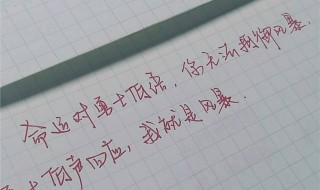 命运对勇士低语，你无法抵御风暴.
士低声回应，我就是风暴.